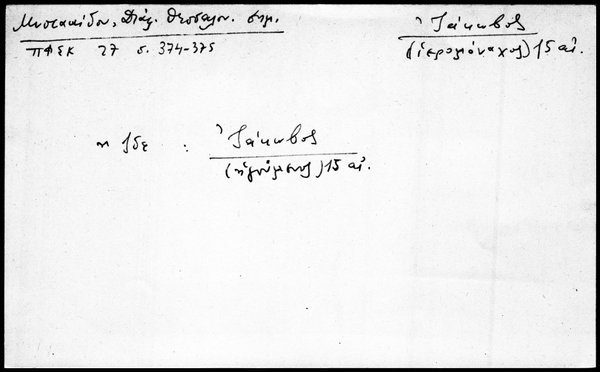 Μυστακίδου, Διάφ. Θεσσαλον. σημ.
ΠΦΣΚ 27 σ. 374-375
Ἰάκωβος
(ἱερομόναχος) 15 αἰ.
ἴδε : Ἰάκωβος
(ἡγούμενος) 15 αἰ.